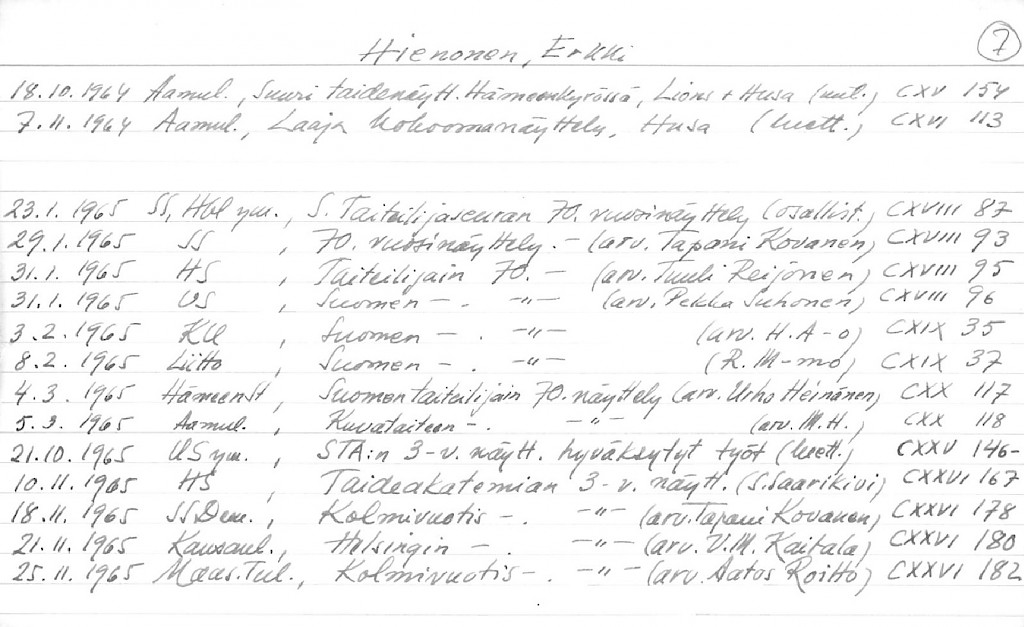 Hienonen, Erkki
7
18.10.1964 Aamul., Suuri taidenäytt. Hämeenkyrössä, Lions + Husa (uut.) CXV 154
7.11.1964 Aamul., Laaja kokoomanäyttely, Husa (luett.) CXVI 113
23.1.1965 SS, Hbl ym., S. Taiteilijaseuran 70. vuosinäyttely (osallist.) CXVIII 87
29.1.1965 SS , 70. vuosinäyttely. - (arv. Tapani Kovanen) CXVIII 93
31.1.1965 HS , Taiteilijain 70. - (arv. Tuuli Reijonen) CXVIII 95
31.1.1965 US , Suomen - . -"- (arv. Pekka Suhonen) CXVIII 96
3.2.1965 KU , Suomen - . -"- (arv. H. A-o) CXIX 35
8.2.1965 Liitto , Suomen - . -"- (R. M-mo) CXIX 37
4.3.1965 Hämeen St , Suomen taiteilijain 70. näyttely (arv. Urho Heinänen) CXX 117
5.3.1965 Aamul. , Kuvataiteen - . -"- (arv. M.H.) CXX 118
21.10.1965 US ym. , STA:n 3-v. näytt. hyväksytyt työt (luett.) CXXV 146-
10.11.1965 HS , Taideakatemian 3-v. näytt. (S. Saarikivi) CXXVI 167
18.11.1965 SSDem. , Kolmivuotis - . -"- (arv. Tapani Kovanen) CXXVI 178
21.11.1965 Kansanl. , Helsingin - . -"- (arv. V.M. Kaitala) CXXVI 180
25.11.1965 Maas.Tul. , Kolmivuotis - . -"- (arv. Aatos Roitto) CXXVI 182